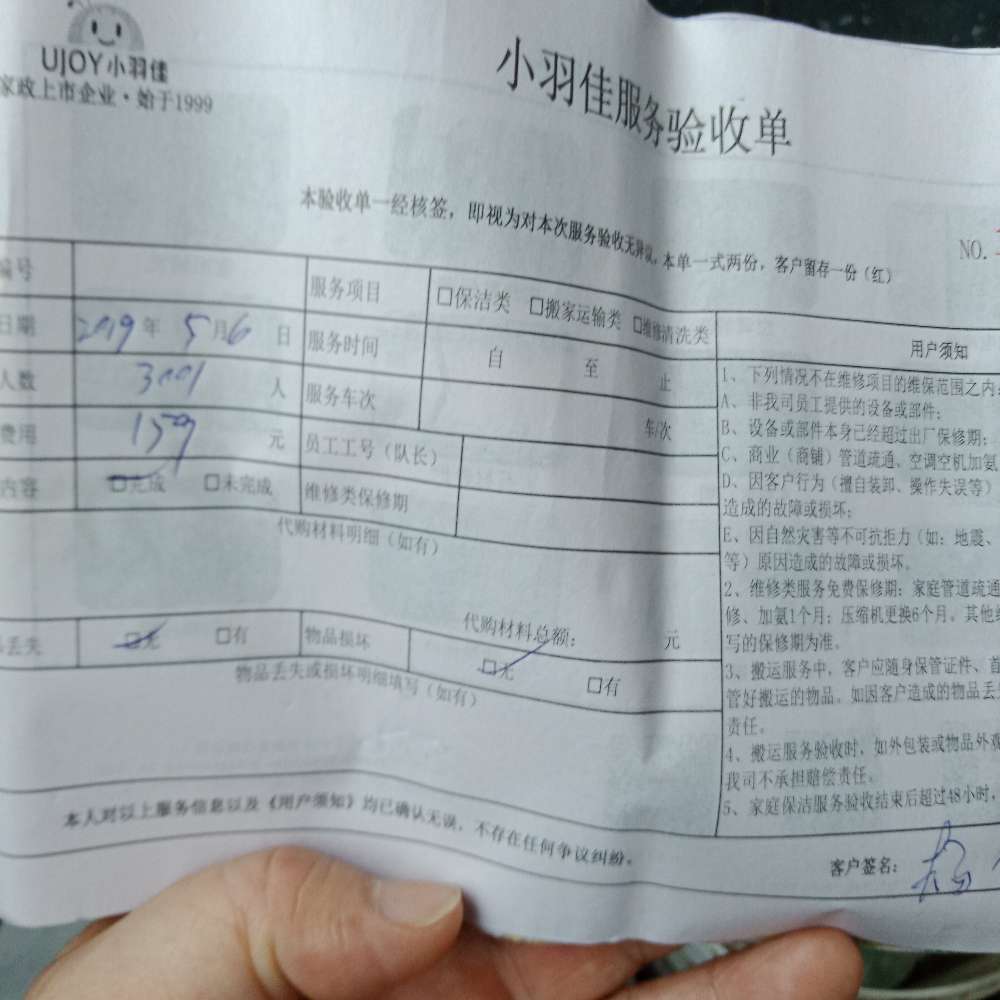 UJOY小羽佳
家政上市企业·始于1999
小羽佳服务验收单
本验收单一经核签，即视为对本次服务验收无异议。本单一式两份，客户留存一份（红）
NO.
编号 服务项目 □保洁类 □搬家运输类 □维修清洗类
日期 2019年 5月6日 服务时间 自 至 止
人数 人 服务车次 车/次
费用 159 元 员工工号（队长）
内容 □完成 □未完成 维修类保修期
代购材料明细（如有）
代购材料总额： 元
丢失 □无 □有 物品损坏 □无 □有
物品丢失或损坏明细填写（如有）
用户须知
1、下列情况不在维修项目的维保范围之内：
A、非我司员工提供的设备或部件；
B、设备或部件本身已经超过出厂保修期；
C、商业（商铺）管道疏通、空调空机加氨
D、因客户行为（擅自装卸、操作失误等）
造成的故障或损坏；
E、因自然灾害等不可抗拒力（如：地震、
等）原因造成的故障或损坏。
2、维修类服务免费保修期：家庭管道疏通
修、加氨1个月；压缩机更换6个月。其他
写的保修期为准。
3、搬运服务中，客户应随身保管证件、首
管好搬运的物品。如因客户造成的物品丢
责任。
4、搬运服务验收时，如外包装或物品外观
我司不承担赔偿责任。
5、家庭保洁服务验收结束后超过48小时，
本人对以上服务信息以及《用户须知》均已确认无误，不存在任何争议纠纷。
客户签名： 杨